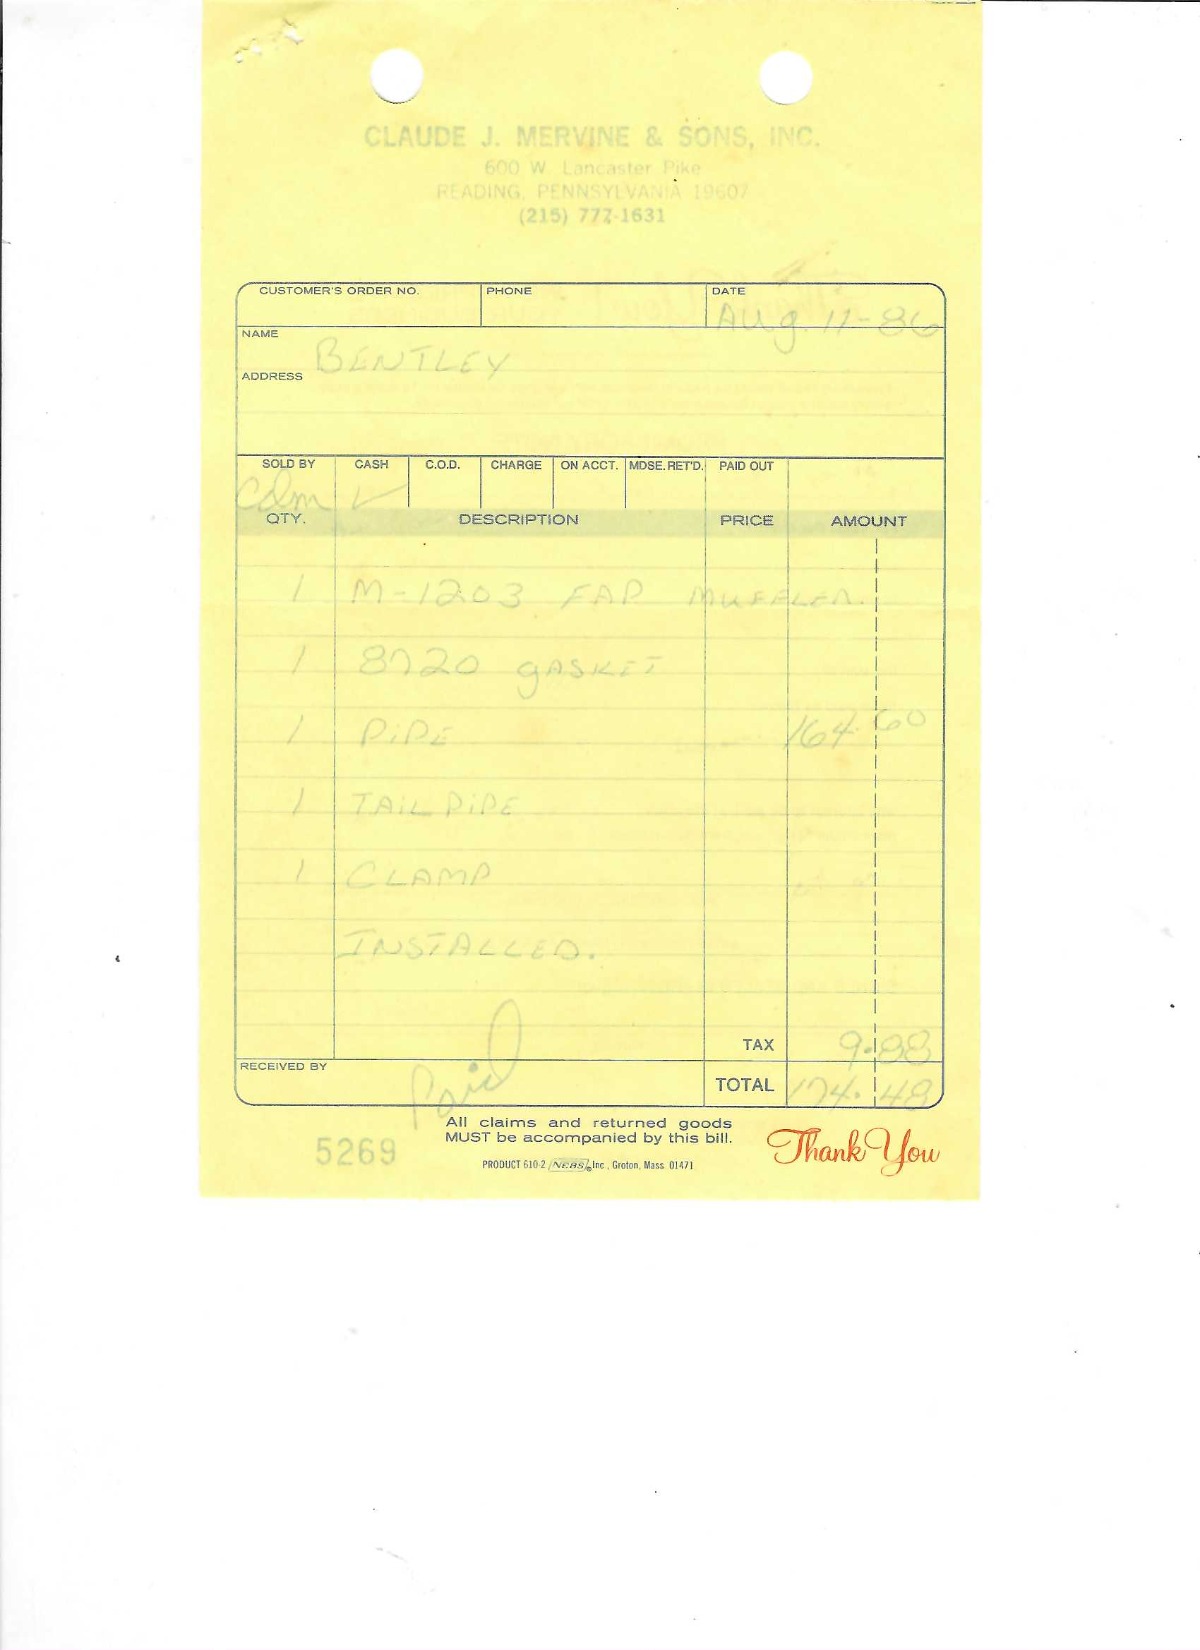 CLAUDE J. MERVINE & SONS, INC.
600 W. Lancaster Pike
READING, PENNSYLVANIA 19607
(215) 777-1631
CUSTOMER'S ORDER NO. PHONE DATE
Aug. 11-86
NAME
BENTLEY
ADDRESS
SOLD BY CASH C.O.D. CHARGE ON ACCT. MDSE. RET'D. PAID OUT
CDM ✓
QTY. DESCRIPTION PRICE AMOUNT
1 M-1203 FAP MUFFLER.
1 8720 gASKET
1 PiPE 164.60
1 TAiL PiPE
1 CLAMP
INSTALLED.
TAX 9.88
RECEIVED BY
Paid
TOTAL 174.48
All claims and returned goods
MUST be accompanied by this bill.
5269
Thank You
PRODUCT 610-2 NEBS Inc., Groton, Mass. 01471